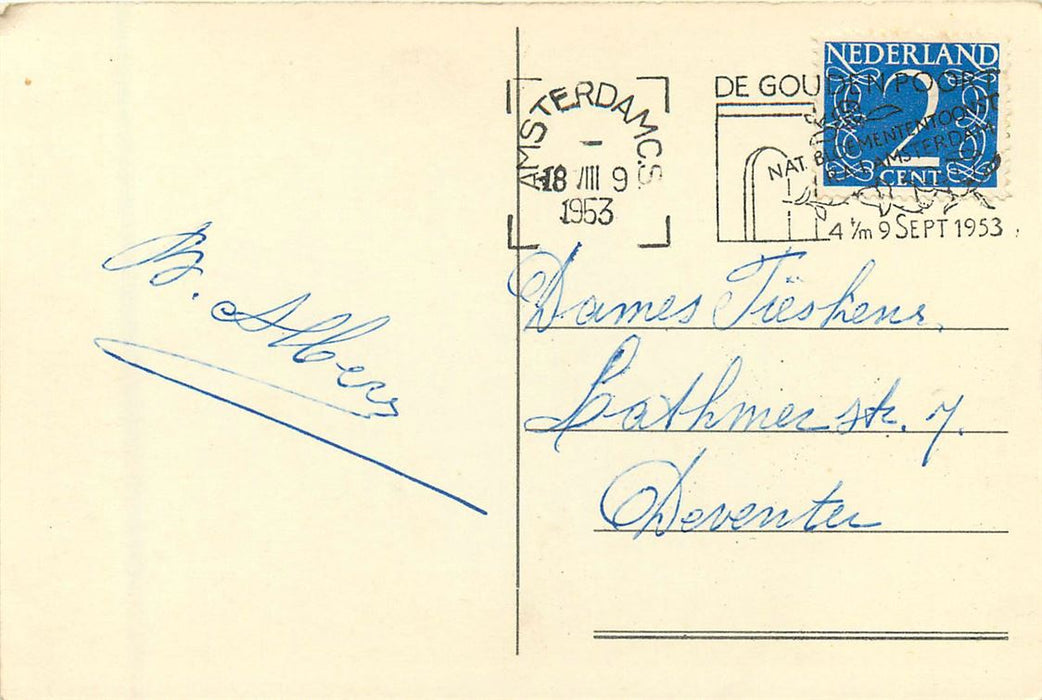 NEDERLAND
2
CENT
AMSTERDAM C.S.
18 VIII 9
1953
DE GOUDEN POORT
NAT. BLOEMENTENTOONST.
RAI AMSTERDAM
4 t/m 9 SEPT 1953
B. Albers
Dames Tieskens,
Lathmer str. 7.
Deventer